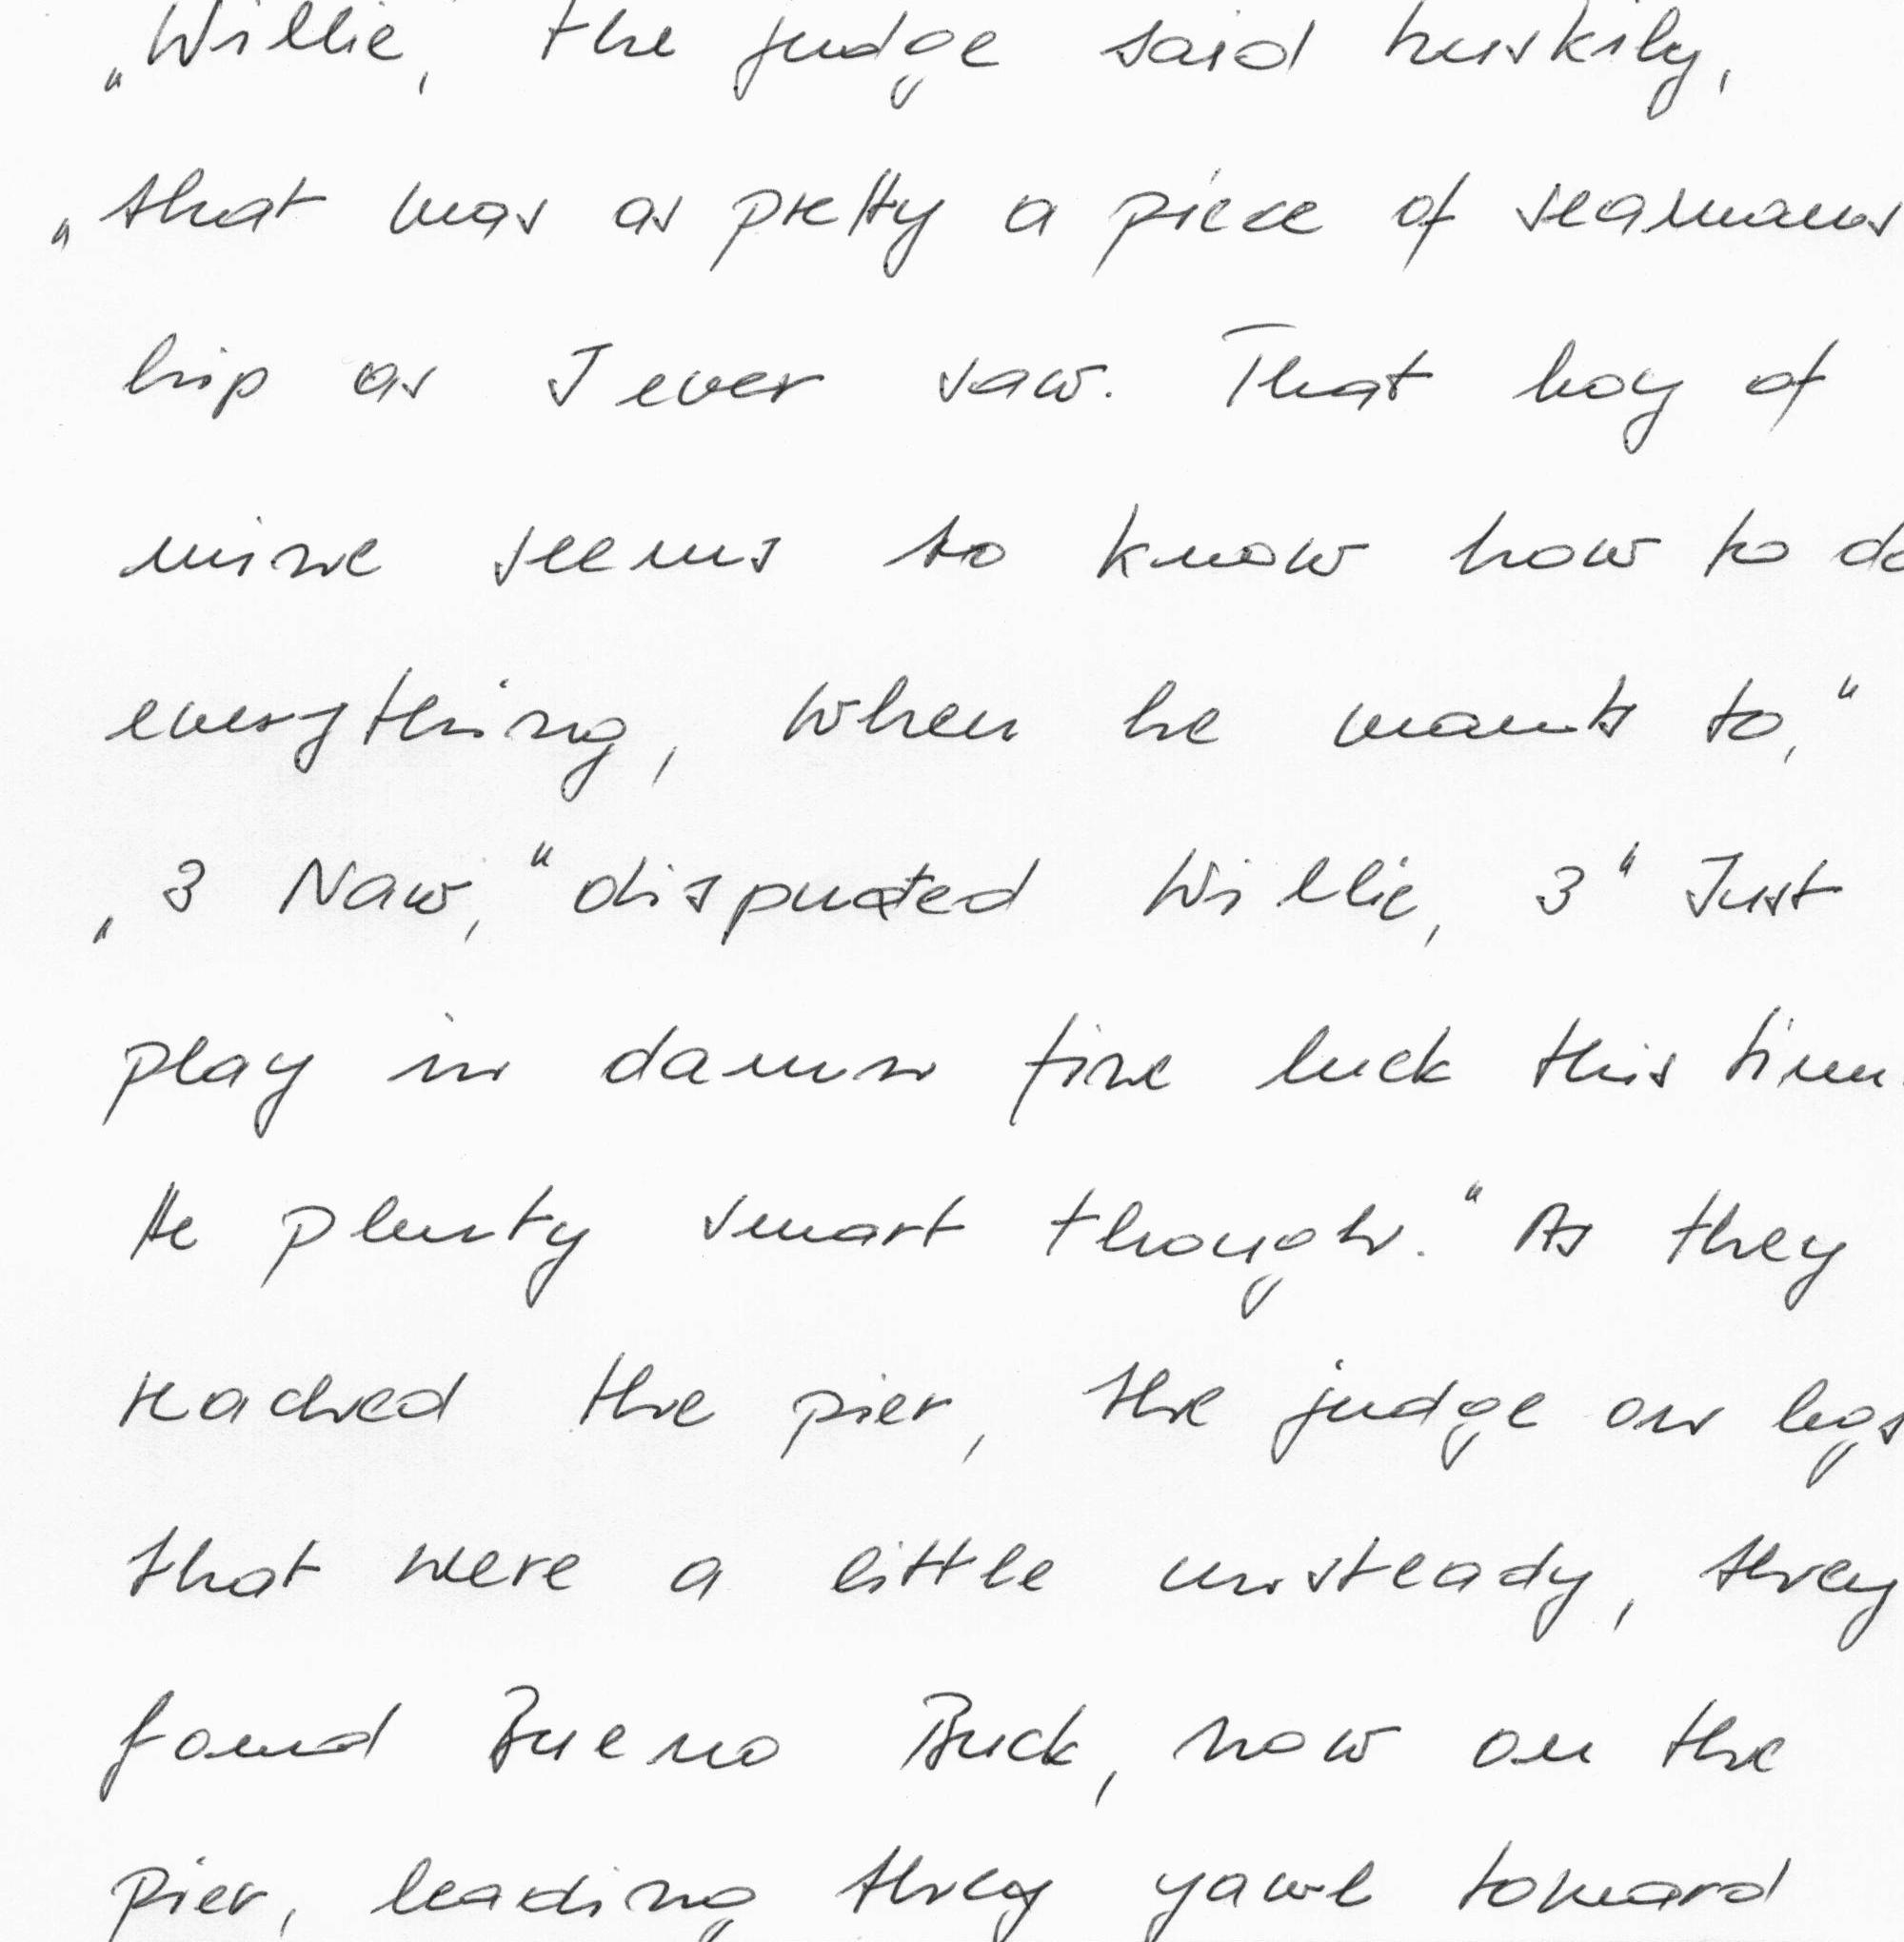 „Willie, the judge said huskily,
„that was as pretty a piece of seamans
hip as I ever saw. That boy of
mine seems to know how to do
everything, when he wants to,"
„3 Naw,“ disputed Willie, 3“ Just
play in damn fine luck this time.
He plenty smart though.“ As they
reached the pier, the judge on legs
that were a little unsteady, they
found Bueno Buck, now on the
pier, leading they yawl toward